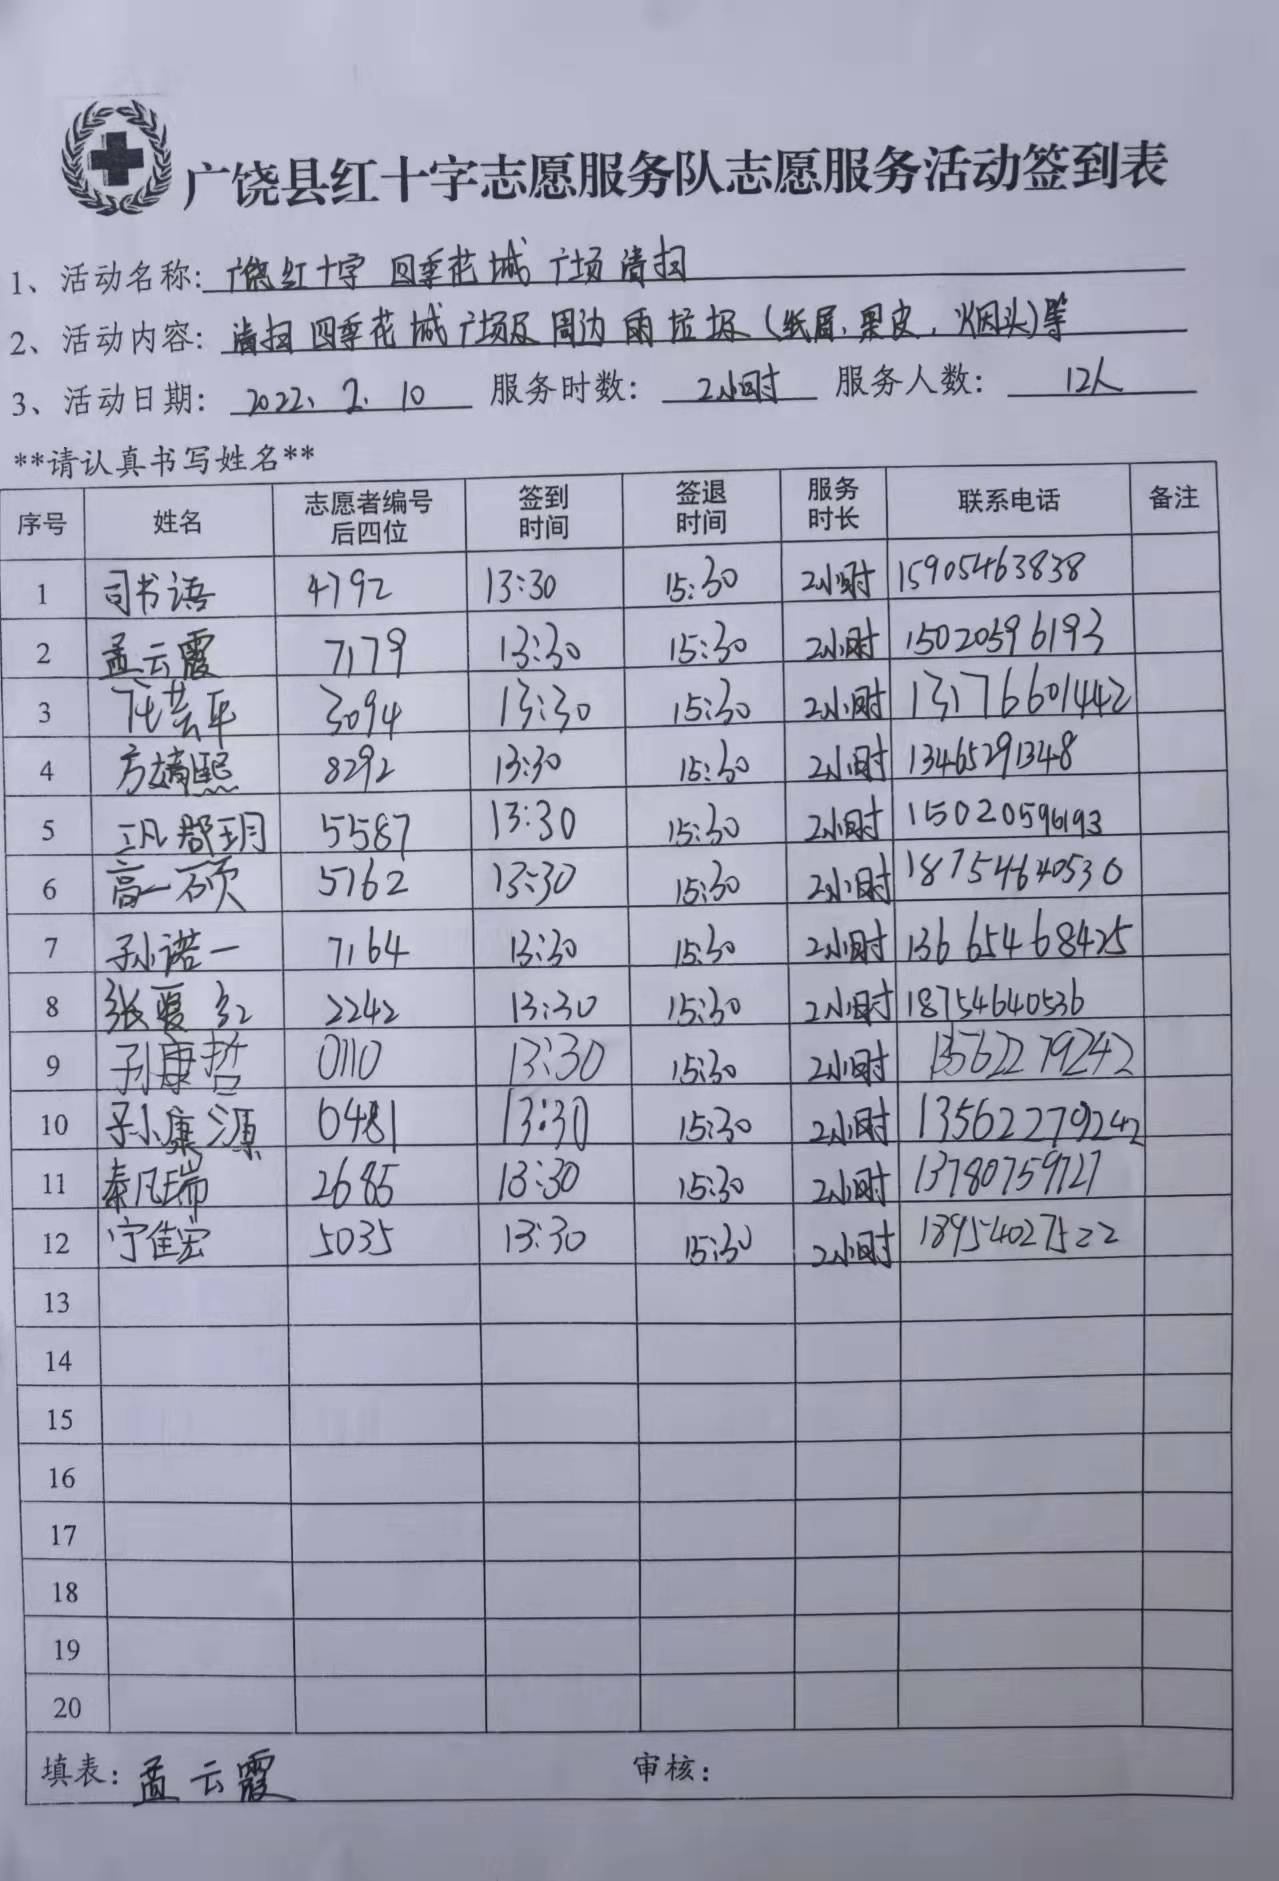 广饶县红十字志愿服务队志愿服务活动签到表
1、活动名称: 广饶红十字 四季花城广场清扫
2、活动内容: 清扫四季花城广场及周边的垃圾(纸屑、果皮、烟头)等
3、活动日期: 2022.2.10 服务时数: 2小时 服务人数: 12人
**请认真书写姓名**
序号 姓名 志愿者编号后四位 签到时间 签退时间 服务时长 联系电话 备注
1 司书语 4792 13:30 15:30 2小时 15905463838
2 孟云霞 7179 13:30 15:30 2小时 15020596193
3 芸平 3094 13:30 15:30 2小时 13176601442
4 方婧熙 8292 13:30 15:30 2小时 13465291348
5 郡玥 5587 13:30 15:30 2小时 15020596193
6 高一硕 5162 13:30 15:30 2小时 18754640530
7 孙诺一 7164 13:30 15:30 2小时 13665468425
8 张爱红 2242 13:30 15:30 2小时 18754640536
9 孙康哲 0110 13:30 15:30 2小时 13562279242
10 孙康源 0481 13:30 15:30 2小时 13562279242
11 秦凡瑞 2685 13:30 15:30 2小时 13780759727
12 宁佳宏 5035 13:30 15:30 2小时 18954027522
13
14
15
16
17
18
19
20
填表: 孟云霞 审核: